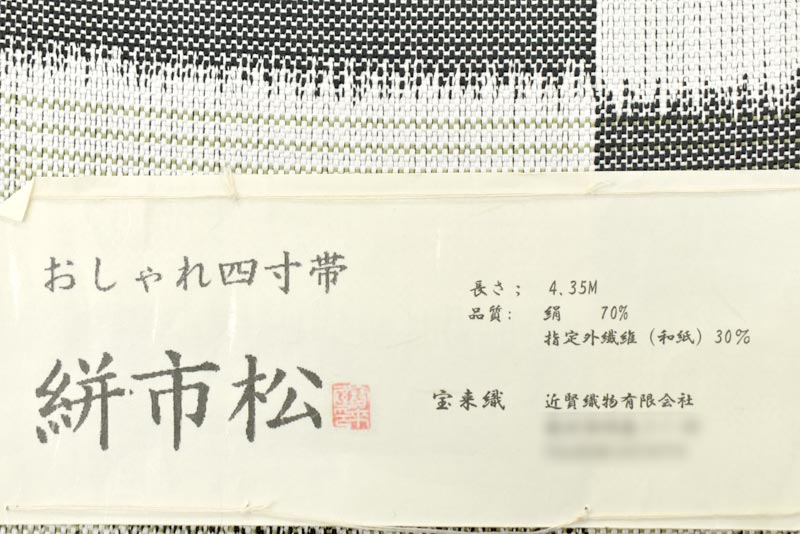 おしゃれ四寸帯
絣市松
長さ; 4.35M
品質: 絹 70%
指定外繊維(和紙)30%
宝来織 近賢織物有限会社